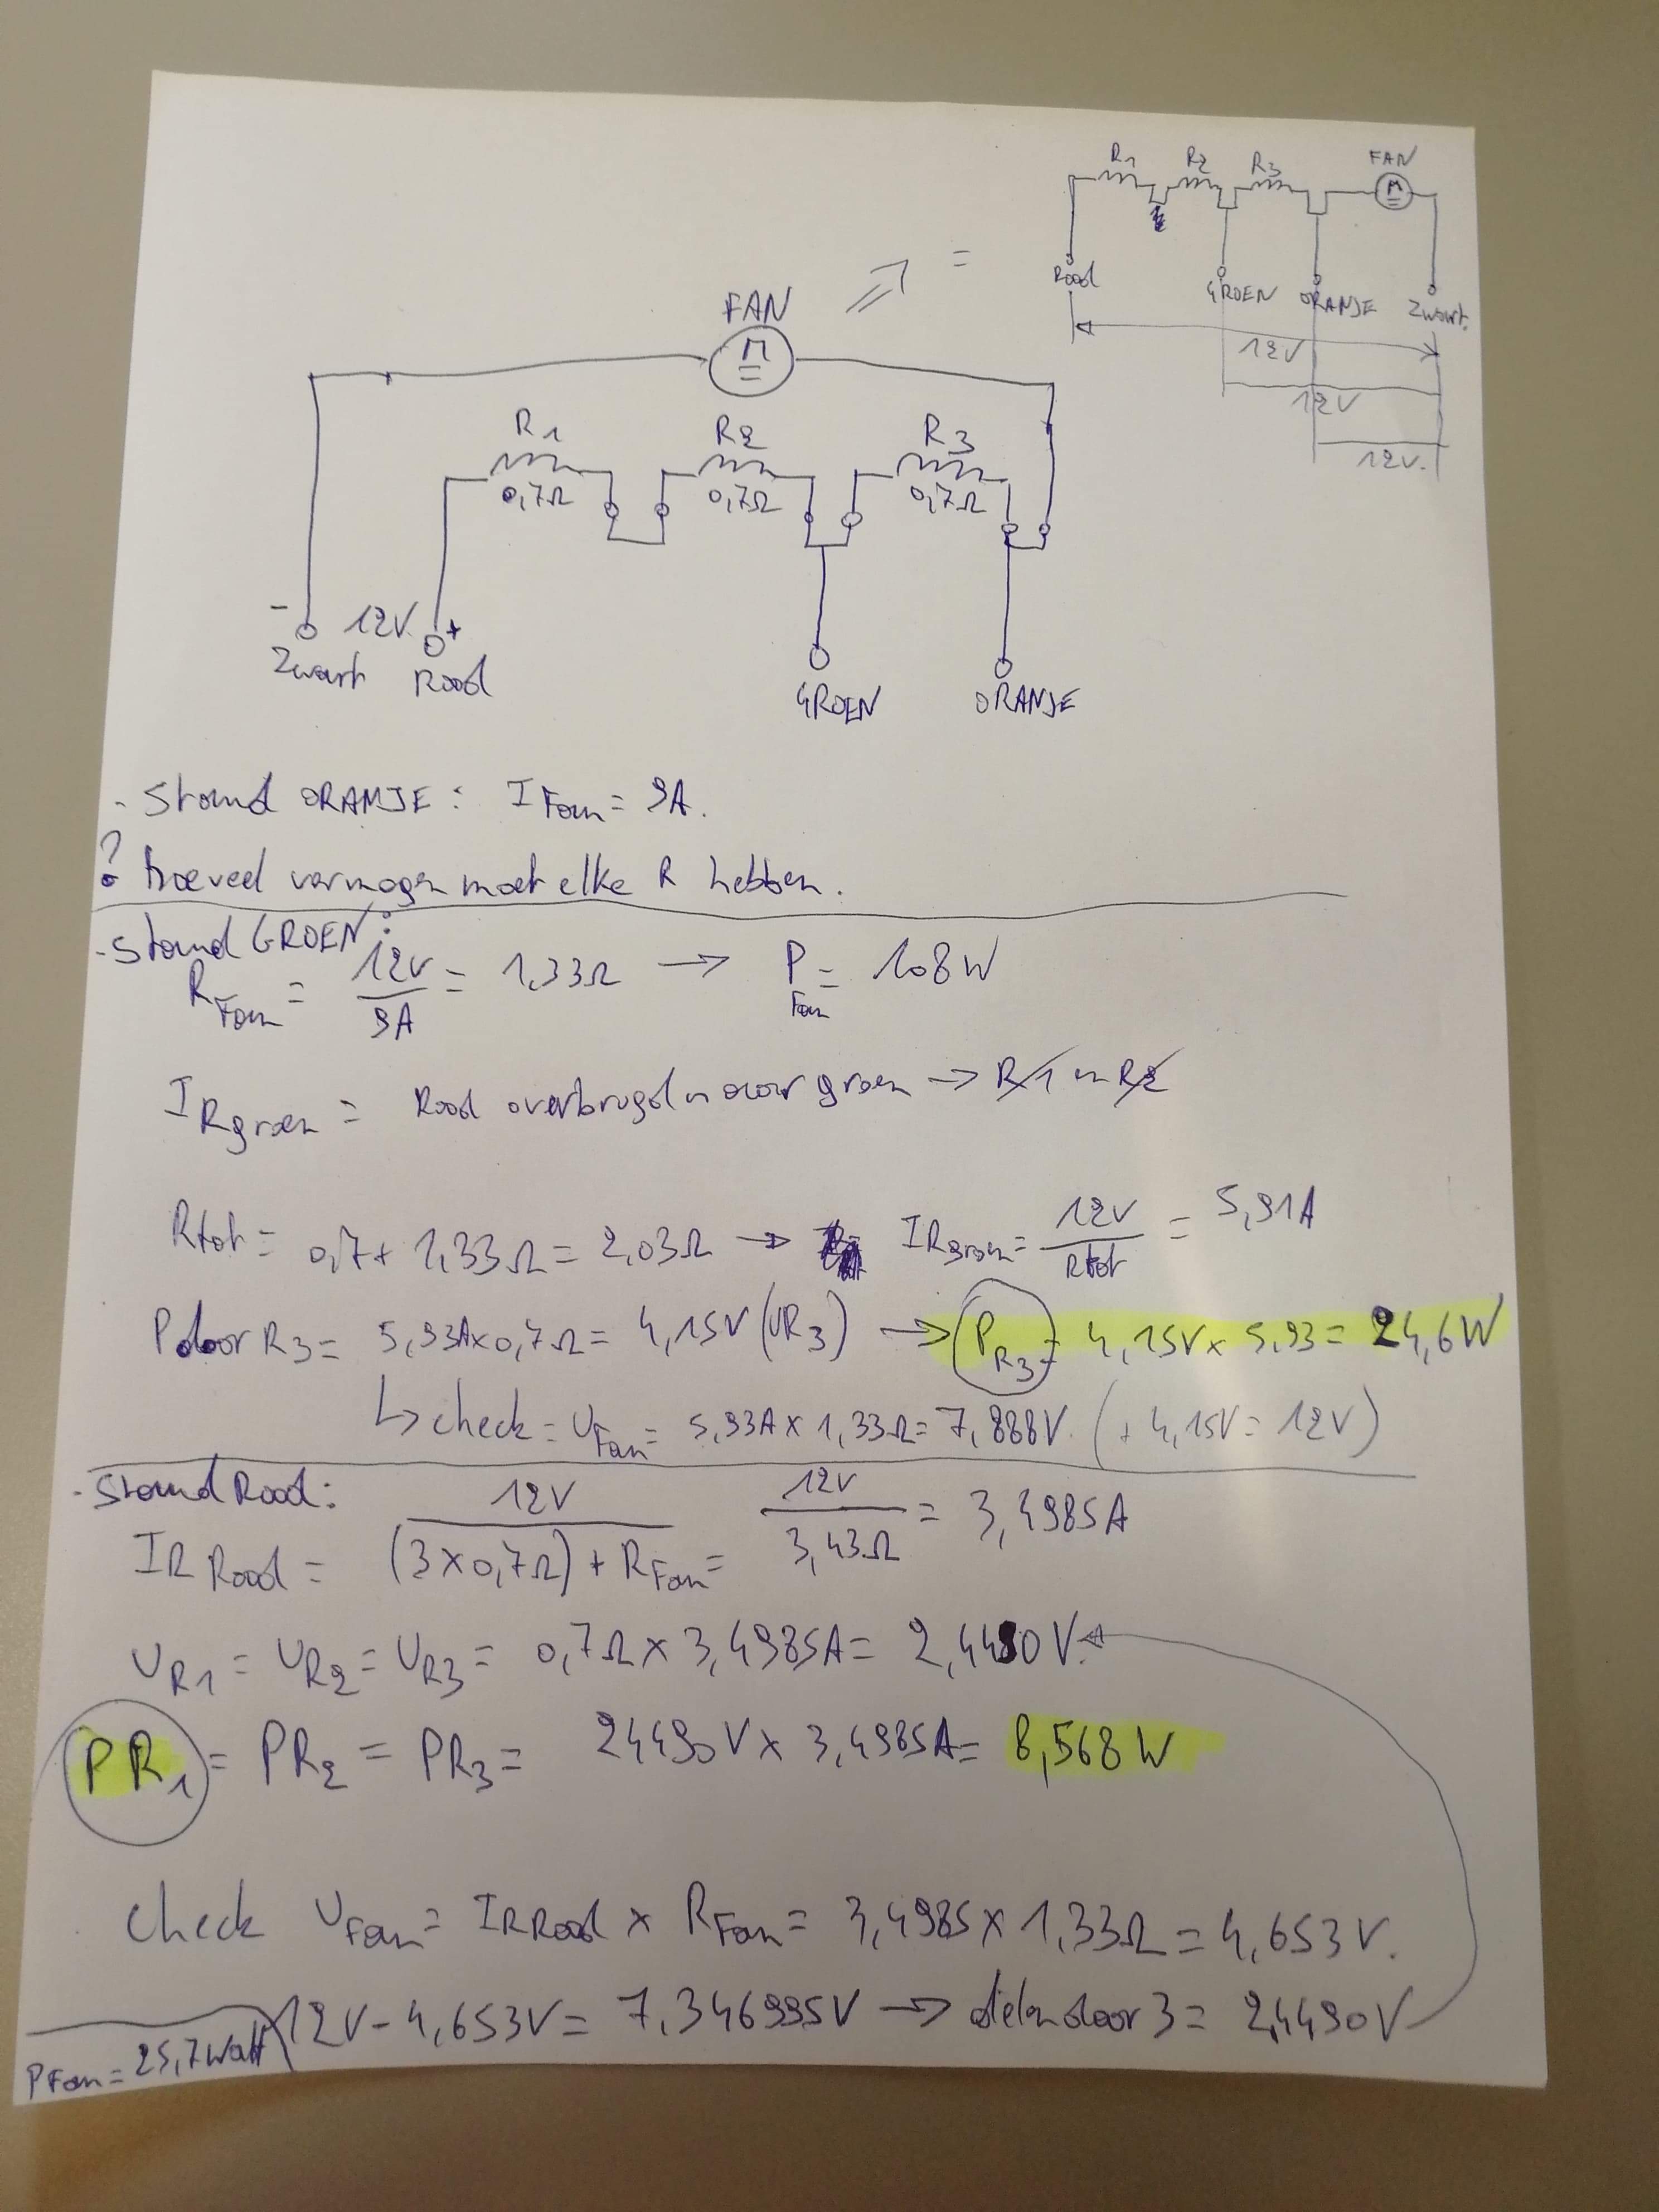 R1 R2 R3 FAN
M
Rood GROEN ORANJE Zwart.
12V
12V
12V.
=
FAN
M
R1 R2 R3
0,7Ω 0,7Ω 0,7Ω
- 12V. +
Zwart Rood
GROEN ORANJE
- Stand ORANJE: I Fan = 9A.
? Hoeveel vermogen moet elke R hebben.
- Stand GROEN:
R Fan = 12V / 9A = 1,33Ω → P Fan = 108W
I Rgroen = Rood overbrugd naar groen → R1 en R2
Rtot = 0,7 + 1,33Ω = 2,03Ω → IRgroen = 12V / Rtot = 5,91A
P door R3 = 5,93A x 0,7Ω = 4,15V (UR3) → PR3 = 4,15V x 5,93 = 24,6W
↳ check = UFan = 5,93A x 1,33Ω = 7,888V. (+ 4,15V = 12V)
- Stand Rood:
IR Rood = 12V / (3 x 0,7Ω) + RFan = 12V / 3,43Ω = 3,4985A
UR1 = UR2 = UR3 = 0,7Ω x 3,4985A = 2,4490V.
PR1 = PR2 = PR3 = 24490V x 3,4985A = 8,568W
Check UFan = IRRood x RFan = 3,4985 x 1,33Ω = 4,653V.
12V - 4,653V = 7,346995V → delen door 3 = 2,4490V
PFan = 25,7Watt